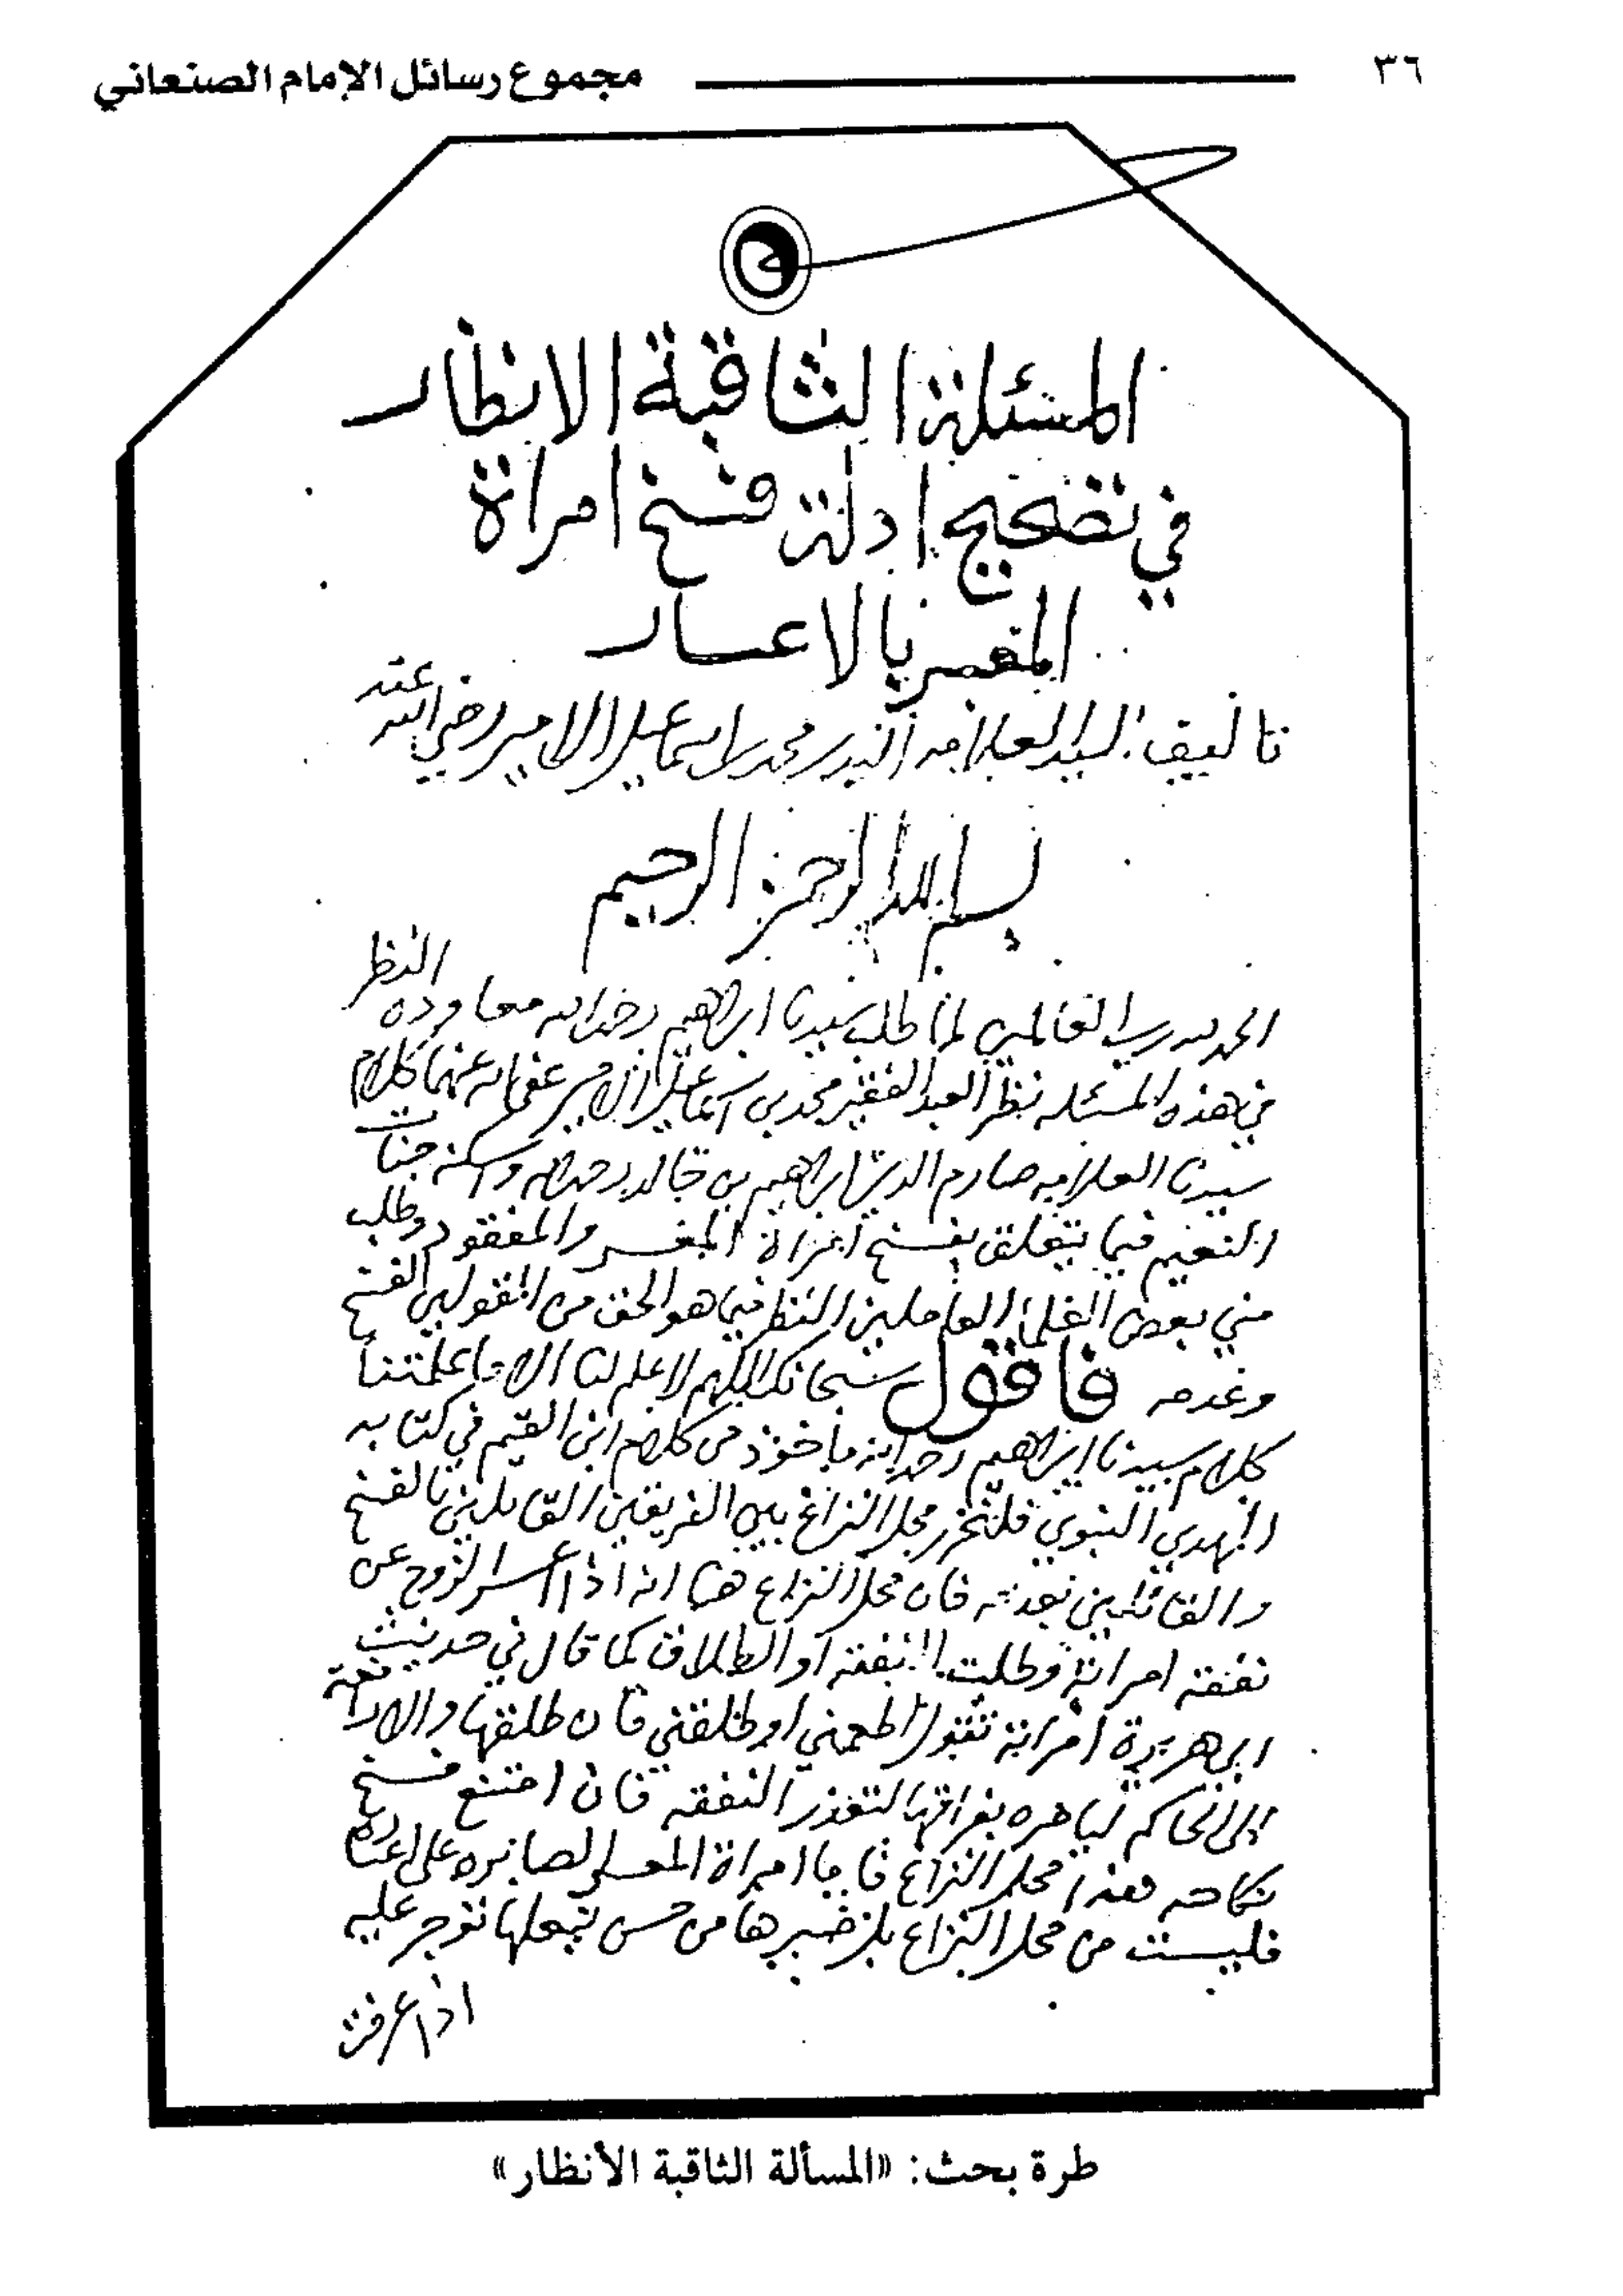 ٣٦
مجموع رسائل الإمام الصنعاني
المسئلة الثاقبة الانظار
في تصحيح ادلة فسخ امراة
المعسر بالاعسار
تاليف السيد العلامه البدر محمد بن اسماعيل الامير رضي الله عنه
بسم الله الرحمن الرحيم
الحمد لله رب العالمين لما طلب سيدنا ابراهيم رحمه الله معاوده النظر
في هذه المسئله نظر العبد الفقير محمد بن اسماعيل الامير عفى الله عنهما كلام
سيدنا العلامه صارم الدين ابراهيم بن خالد رحمه الله واسكنه جنات
النعيم فيما يتعلق بفسخ امراة المعسر والمفقود وطلب
مني بعض العلماء العاملين النظر فيما هو الحق من القولين الفسخ
وعدمه فاقول سبحانك اللهم لا علم لنا الا ما علمتنا
كلام سيدنا ابراهيم رحمه الله ماخوذ من كلام ابن القيم في كتابه
الهدي النبوي فلنحرر محل النزاع بين الفريقين القائلين بالفسخ
والقائلين بعدمه فان محل النزاع هنا انه اذا اعسر الزوج عن
نفقه امراته وطلبت النفقه او الطلاق كما قال في حديث
ابي هريرة امراته تقول اطعمني او طلقني فان طلقها والا رافعته
الى الحاكم ليامره بفراقها لتعذر النفقه فان امتنع فسخ
نكاحه فهذا محل النزاع فاما امراة المعسر الصابره على اعساره
فليست من محل النزاع بل صبرها من حسن تبعلها تؤجر عليه
اذا عرفت
طرة بحث: «المسألة الثاقبة الأنظار»